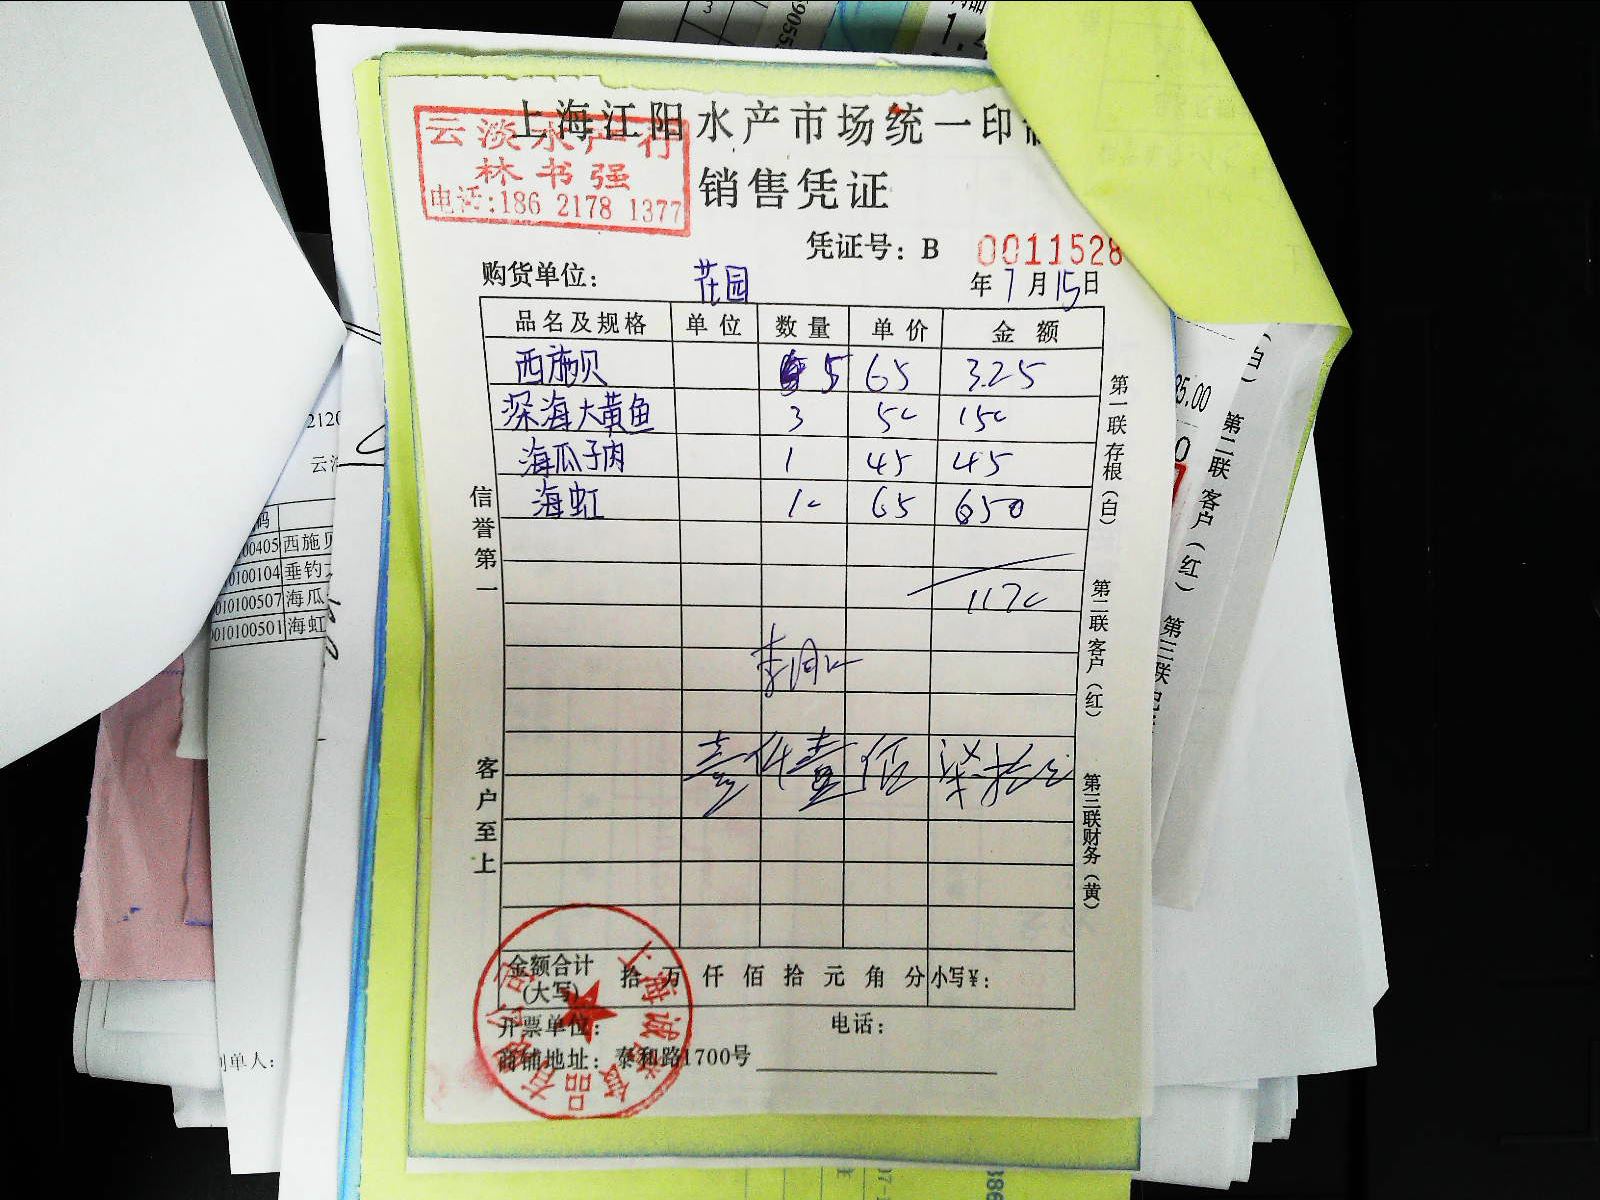 上海江阳水产市场统一印
云淡水产行
林书强
电话:186 2178 1377
销售凭证
凭证号: B 0011528
购货单位: 花园 年7月15日
品名及规格 单位 数量 单价 金额
西施贝 5 65 325
深海大黄鱼 3 50 150
海瓜子肉 1 45 45
海虹 10 65 650
1170
壹仟壹佰柒拾元
信誉第一
客户至上
第一联存根(白)
第二联客户(红)
第三联财务(黄)
金额合计(大写) 拾 万 仟 佰 拾 元 角 分 小写¥:
开票单位: 电话:
商铺地址: 泰和路1700号
00405 西施贝
0100104 垂钓
010100507 海瓜
0010100501 海虹
制单人:
85.00
(白)
第二联客户(红)
第三联